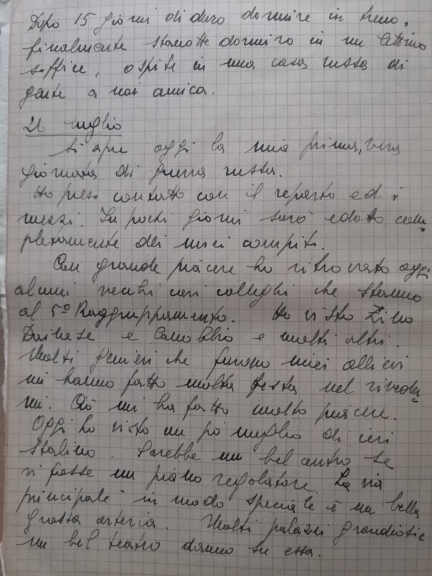 Dopo 15 giorni di duro dormire in treno,
finalmente stanotte dormirò in un lettino
soffice, ospite in una casa russa di
gente a noi amica.
21 luglio
Si apre oggi la mia prima, vera
giornata di guerra russa.
Ho preso contatto con il reparto ed i
mezzi. In pochi giorni sarò edotto com-
pletamente dei miei compiti.
Con grande piacere ho ritrovato oggi
alcuni vecchi cari colleghi che stanno
al 5º Raggruppamento. Ho visto Zino
e Canobbio e molti altri.
Molti genieri che furono miei allievi
mi hanno fatto molta festa nel riveder-
mi. Ciò mi ha fatto molto piacere.
Oggi ho visto un po' meglio di ieri
Stalino. Sarebbe un bel centro se
vi fosse un piano regolatore. La via
principale in modo speciale è una bella
grossa arteria. Molti palazzi grandiosi e
un bel teatro danno su essa.